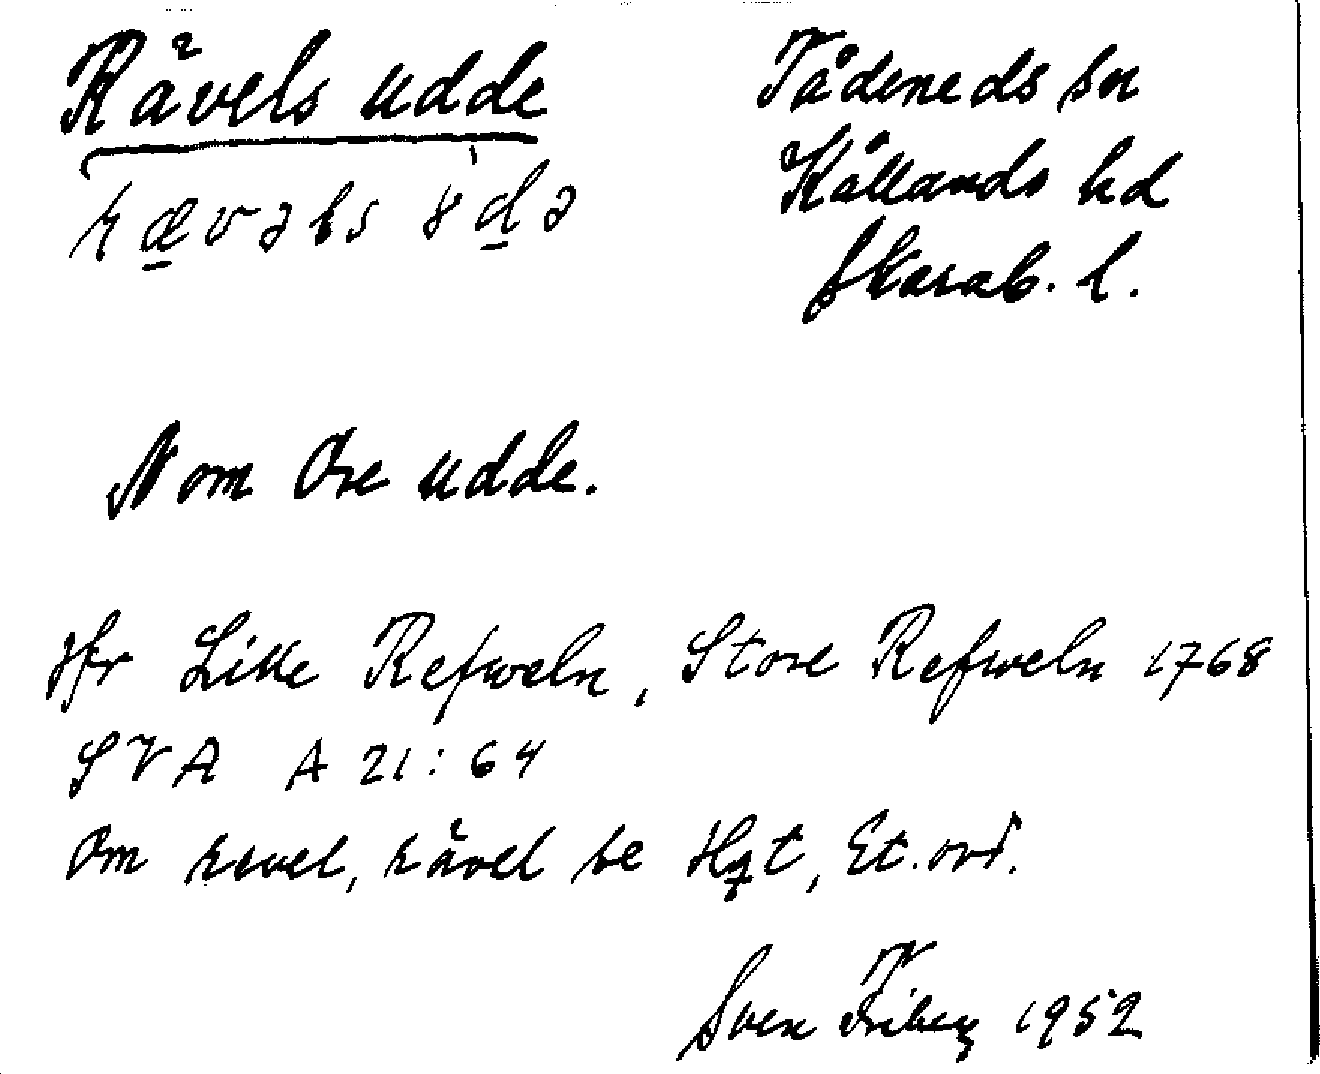 Rävels udde
Tådeneds sn
Kållands hd
Skarab. l.
rævəls ud̲ə
N om Ore udde.
Jfr Lille Refweln, Store Refweln 1768
LVA A 21:64
Om revel, rävel se Hqt, Et. ord.
Sven Friberg 1952